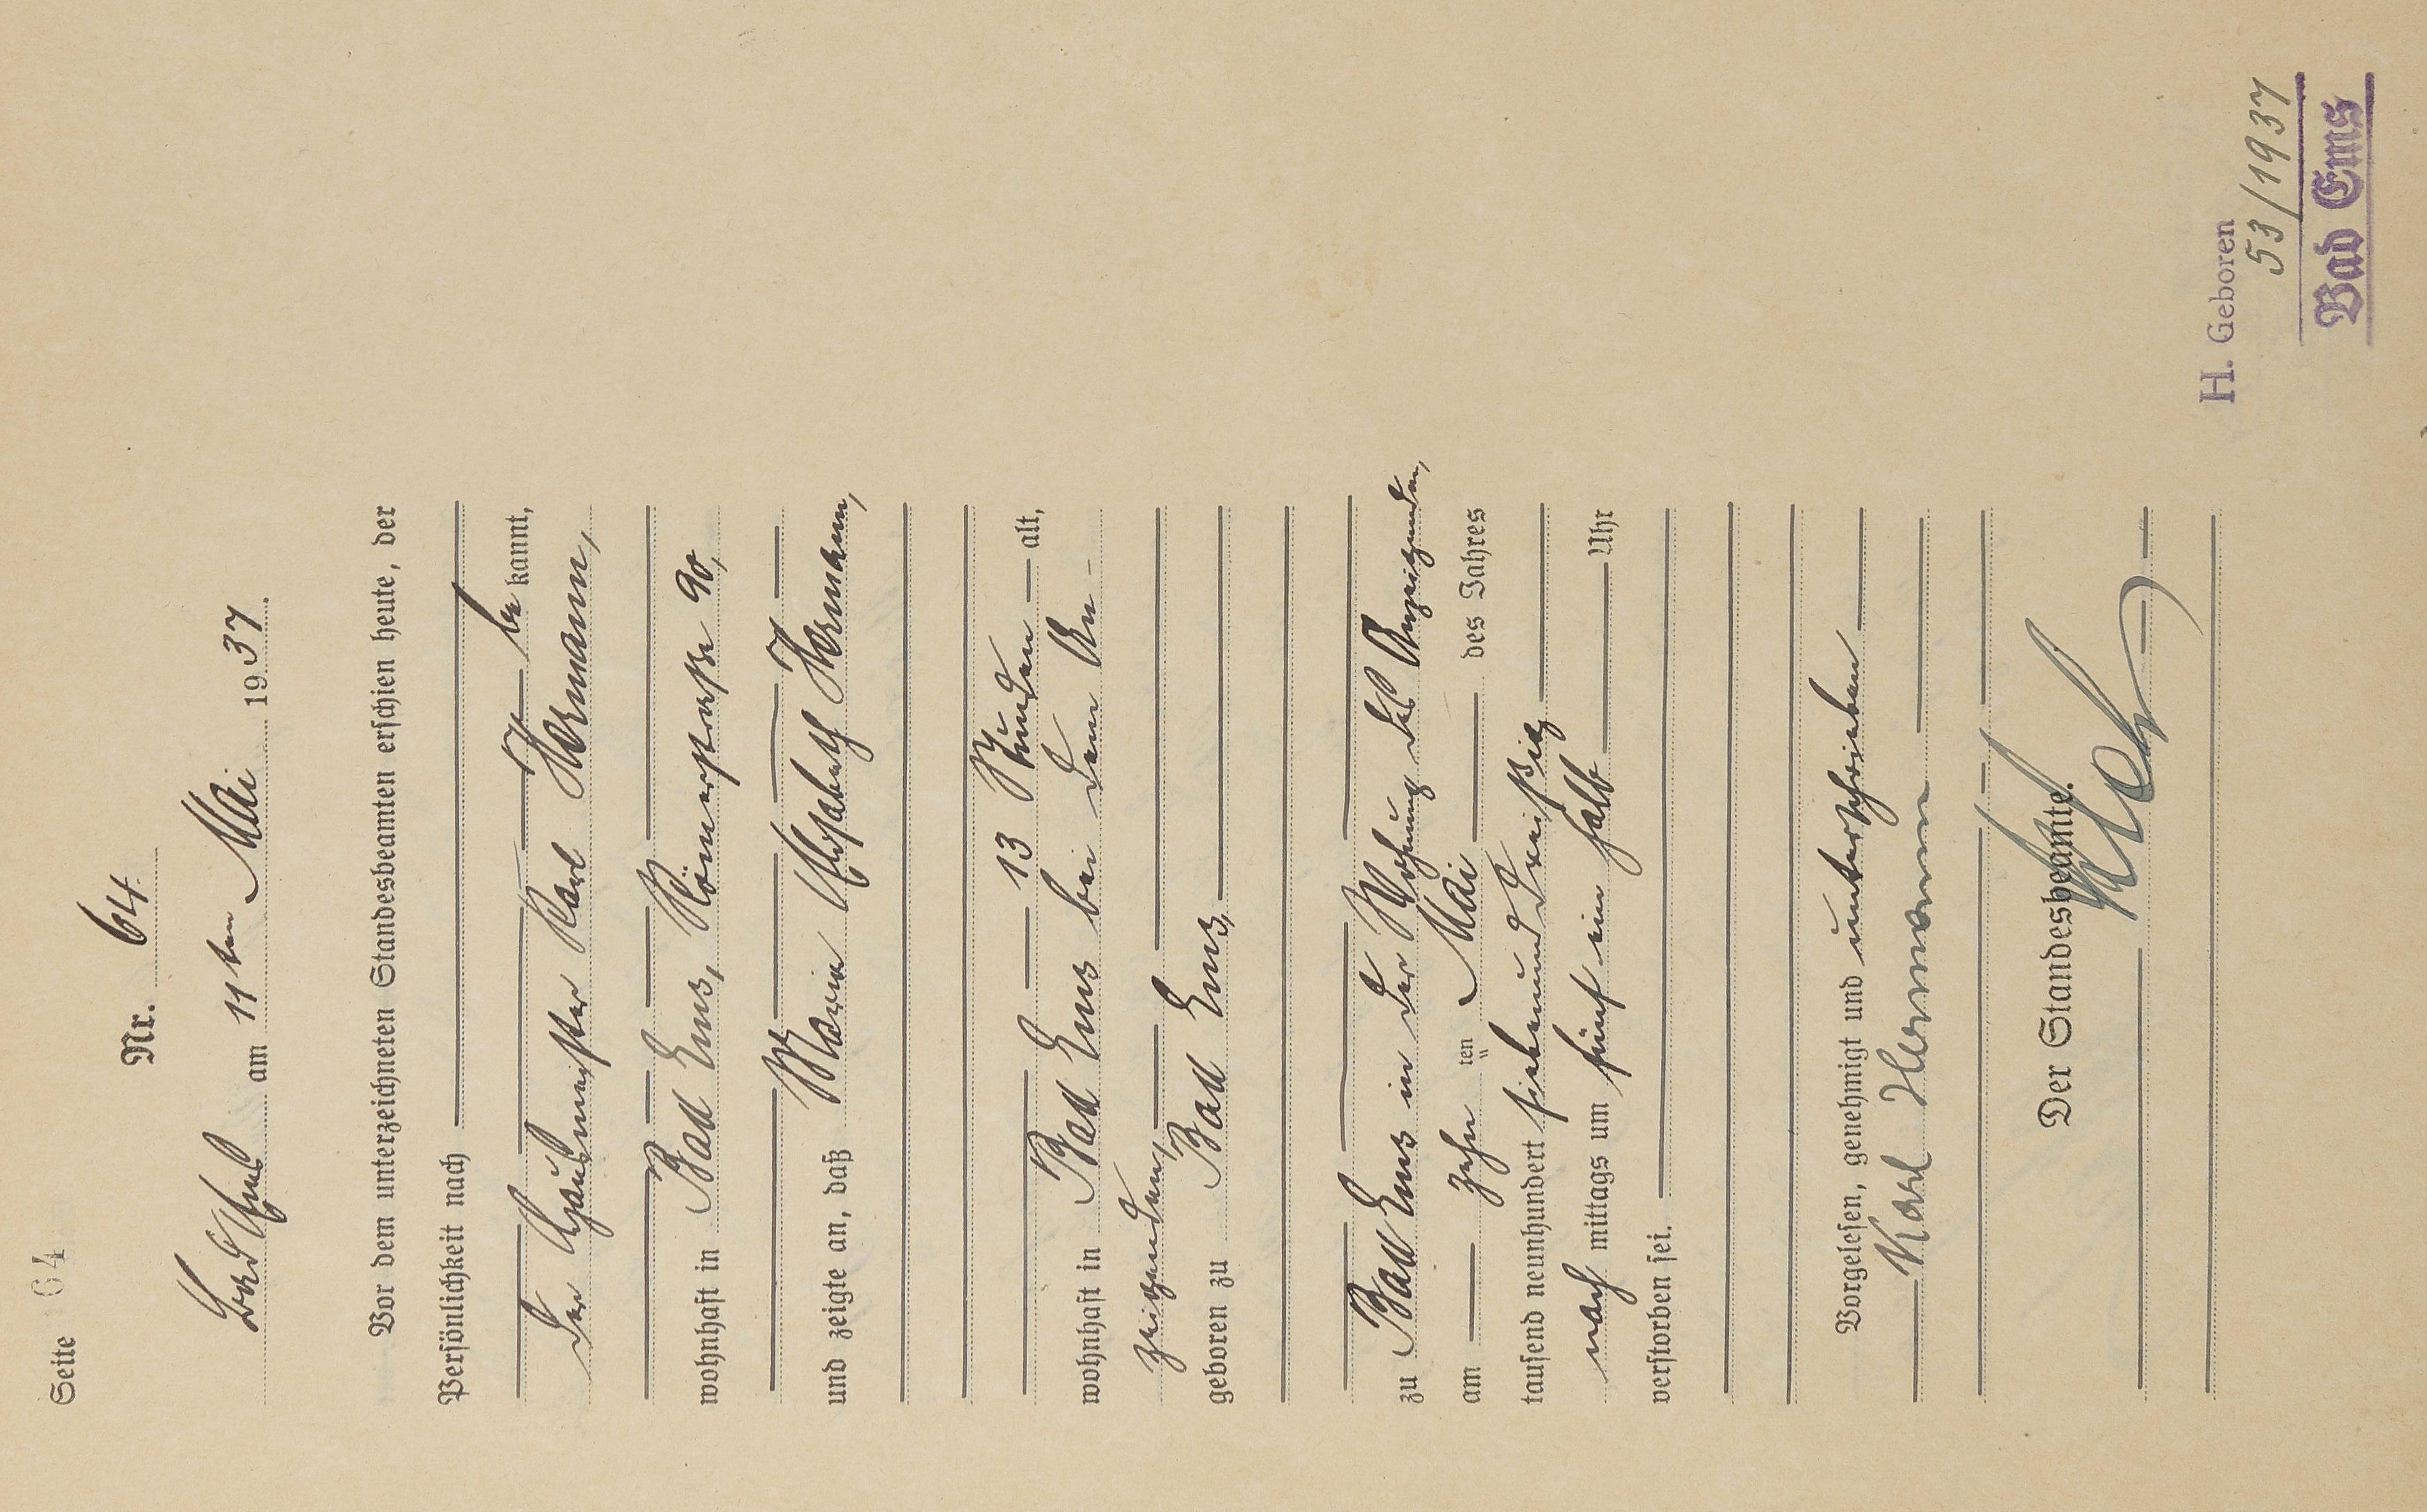 Seite 64
Nr. 64.
Bad Ems am 11ten Mai 1937.
Vor dem unterzeichneten Standesbeamten erschien heute, der
Persönlichkeit nach be kannt,
der Hausmeister Karl Hermann,
wohnhaft in Bad Ems, Römerstraße 90,
und zeigte an, daß Maria Elisabeth Hermann,
13 Stunden alt,
wohnhaft in Bad Ems bei dem An-
zeigenden,
geboren zu Bad Ems,
zu Bad Ems in der Wohnung des Anzeigenden,
am zehn ten Mai des Jahres
tausend neunhundert siebenunddreißig
nach mittags um fünf ein halb Uhr
verstorben sei.
Vorgelesen, genehmigt und unterschrieben
Karl Hermann
Der Standesbeamte.
H. Geboren
53/1937
Bad Ems